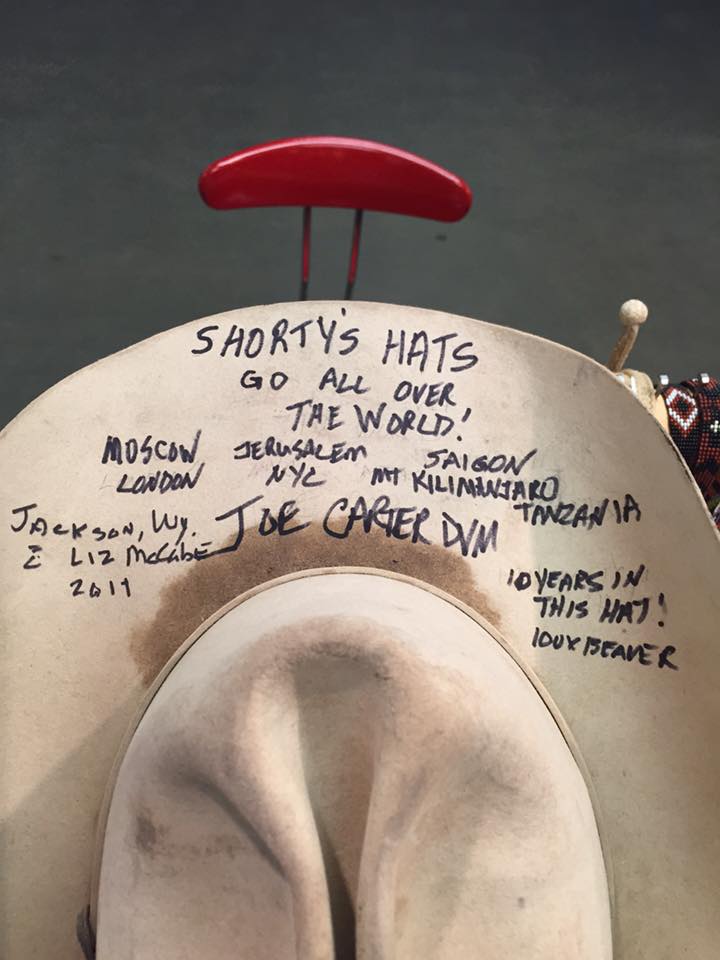 SHORTY'S HATS
GO ALL OVER
THE WORLD!
MOSCOW JERUSALEM SAIGON
LONDON NYC MT KILIMANJARO
TANZANIA
JACKSON, Wy.
& LIZ McCABE
2011
JOE CARTER DVM
10 YEARS IN
THIS HAT!
100X BEAVER